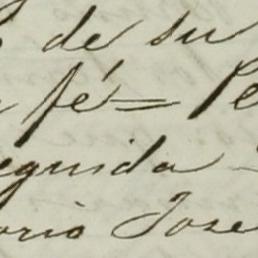 de su
fé = Pe
eguida
orio Jose